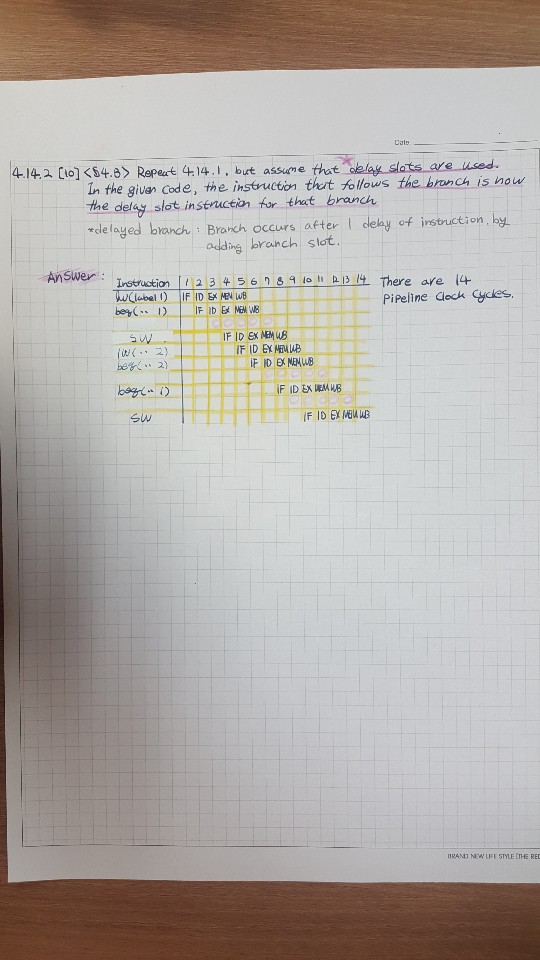 Date
4.14.2 [10] <§4.8> Repeat 4.14.1, but assume that delay slots are used.
In the given code, the instruction that follows the branch is now
the delay slot instruction for that branch
*delayed branch : Branch occurs after 1 delay of instruction, by
adding branch slot.
Answer :
Instruction 1 2 3 4 5 6 7 8 9 10 11 12 13 14 There are 14
lw(label 1) IF ID EX MEM WB Pipeline Clock Cycles.
beq(.. 1) IF ID EX MEM WB
SW IF ID EX MEM WB
lw(.. 2) IF ID EX MEM WB
beq(.. 2) IF ID EX MEM WB
beq(.. 1) IF ID EX MEM WB
SW IF ID EX MEM WB
BRAND NEW LIFE STYLE [THE RED